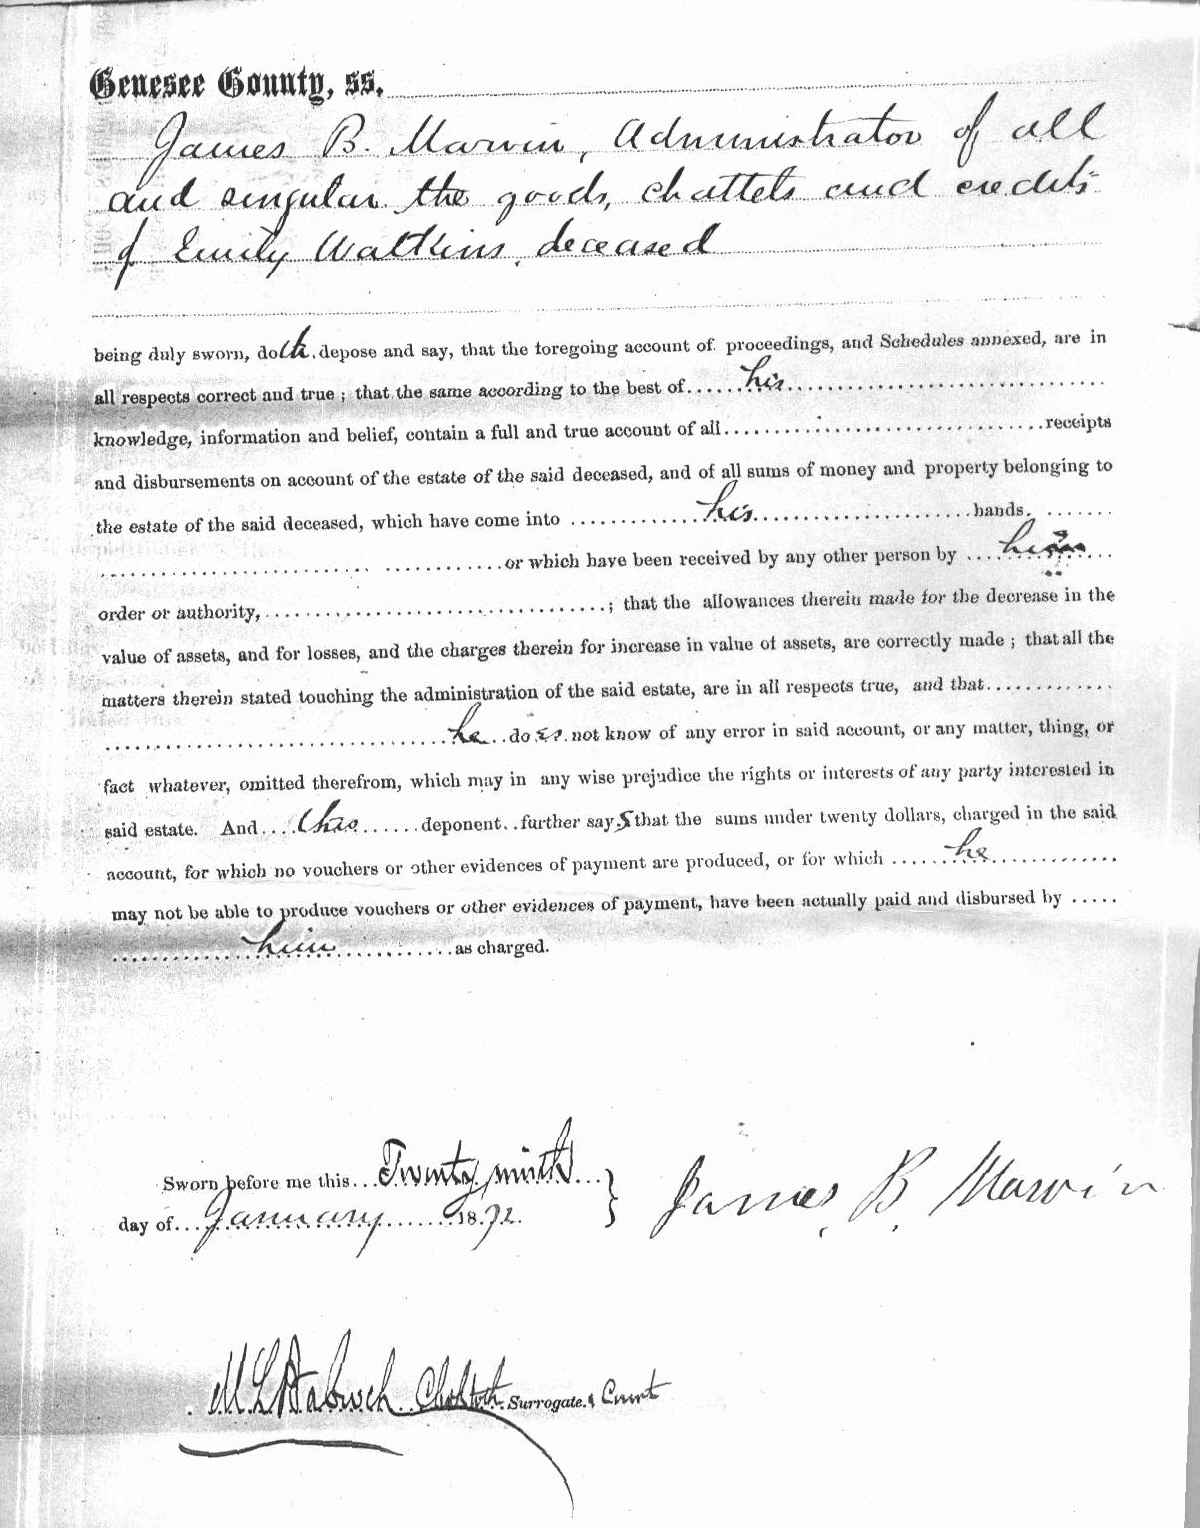 Genesee County, ss.
James B. Marvin, Administrator of all
and singular the goods, chattels and credits
of Emily Watkins, deceased
being duly sworn, doth depose and say, that the foregoing account of proceedings, and Schedules annexed, are in
all respects correct and true ; that the same according to the best of his
knowledge, information and belief, contain a full and true account of all receipts
and disbursements on account of the estate of the said deceased, and of all sums of money and property belonging to
the estate of the said deceased, which have come into his hands.
or which have been received by any other person by
order or authority, ; that the allowances therein made for the decrease in the
value of assets, and for losses, and the charges therein for increase in value of assets, are correctly made ; that all the
matters therein stated touching the administration of the said estate, are in all respects true, and that
he does not know of any error in said account, or any matter, thing, or
fact whatever, omitted therefrom, which may in any wise prejudice the rights or interests of any party interested in
said estate. And this deponent further says that the sums under twenty dollars, charged in the said
account, for which no vouchers or other evidences of payment are produced, or for which he
may not be able to produce vouchers or other evidences of payment, have been actually paid and disbursed by
him as charged.
Sworn before me this Twenty ninth
day of January 1872.
James B. Marvin
Surrogate Court